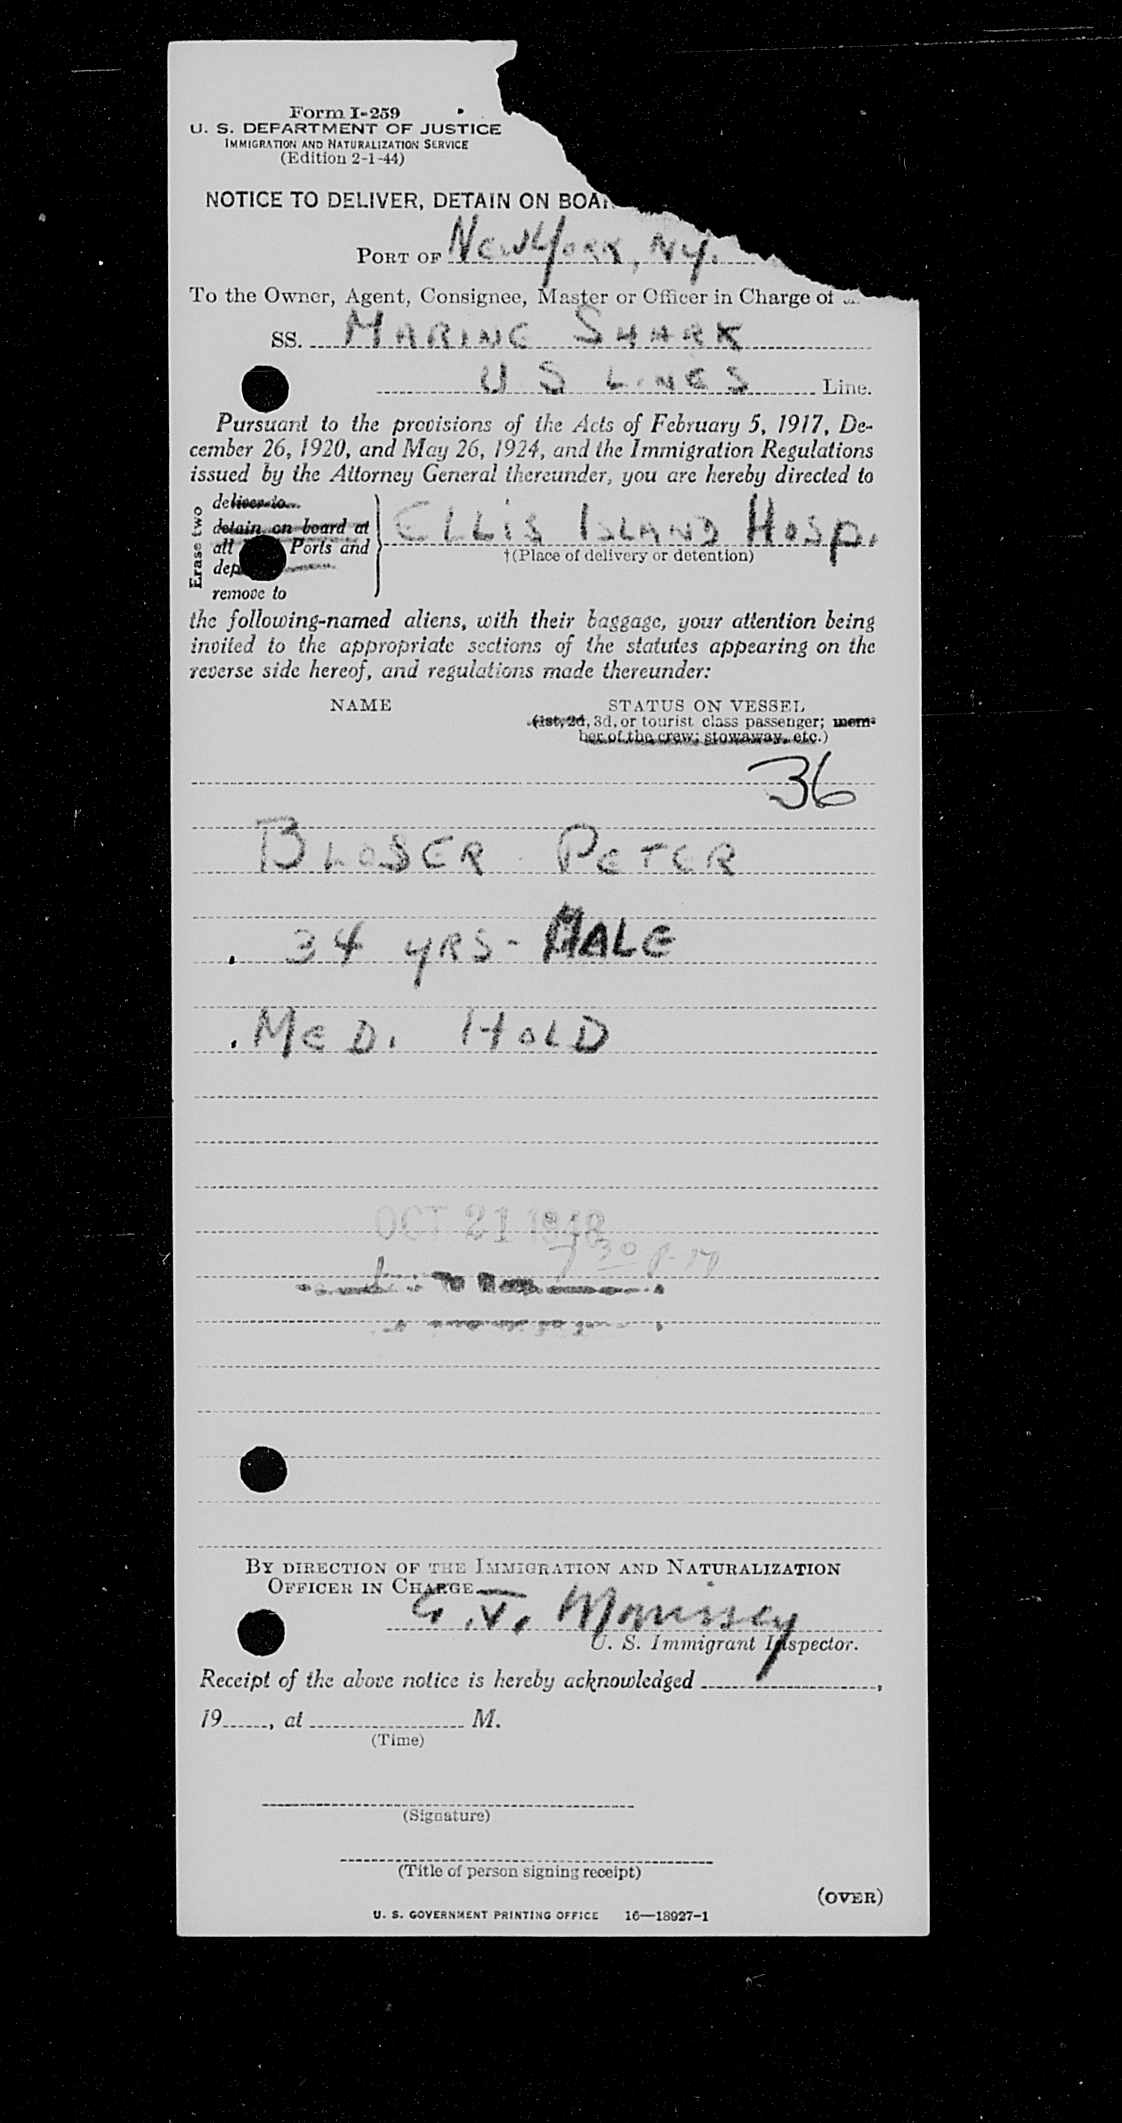 Form I-259
U. S. DEPARTMENT OF JUSTICE
IMMIGRATION AND NATURALIZATION SERVICE
(Edition 2-1-44)
NOTICE TO DELIVER, DETAIN ON BOA
PORT OF New York, NY.
To the Owner, Agent, Consignee, Master or Officer in Charge of
SS. MARINE SHARK
U S LINES Line.
Pursuant to the provisions of the Acts of February 5, 1917, De-
cember 26, 1920, and May 26, 1924, and the Immigration Regulations
issued by the Attorney General thereunder, you are hereby directed to
Erase two
deliver to
detain on board at
all Ports and
dep
remove to
ELLIS ISLAND HOSP.
†(Place of delivery or detention)
the following-named aliens, with their baggage, your attention being
invited to the appropriate sections of the statutes appearing on the
reverse side hereof, and regulations made thereunder:
NAME STATUS ON VESSEL
(1st, 2d, 3d, or tourist class passenger; mem-
ber of the crew; stowaway, etc.)
36
BLOSER PETER
34 YRS - MALE
MED. HOLD
OCT 21 1948
7 30 P M
BY DIRECTION OF THE IMMIGRATION AND NATURALIZATION
OFFICER IN CHARGE
Morrissey
U. S. Immigrant Inspector.
Receipt of the above notice is hereby acknowledged ,
19 , at M.
(Time)
(Signature)
(Title of person signing receipt)
(OVER)
U. S. GOVERNMENT PRINTING OFFICE 16—18927-1